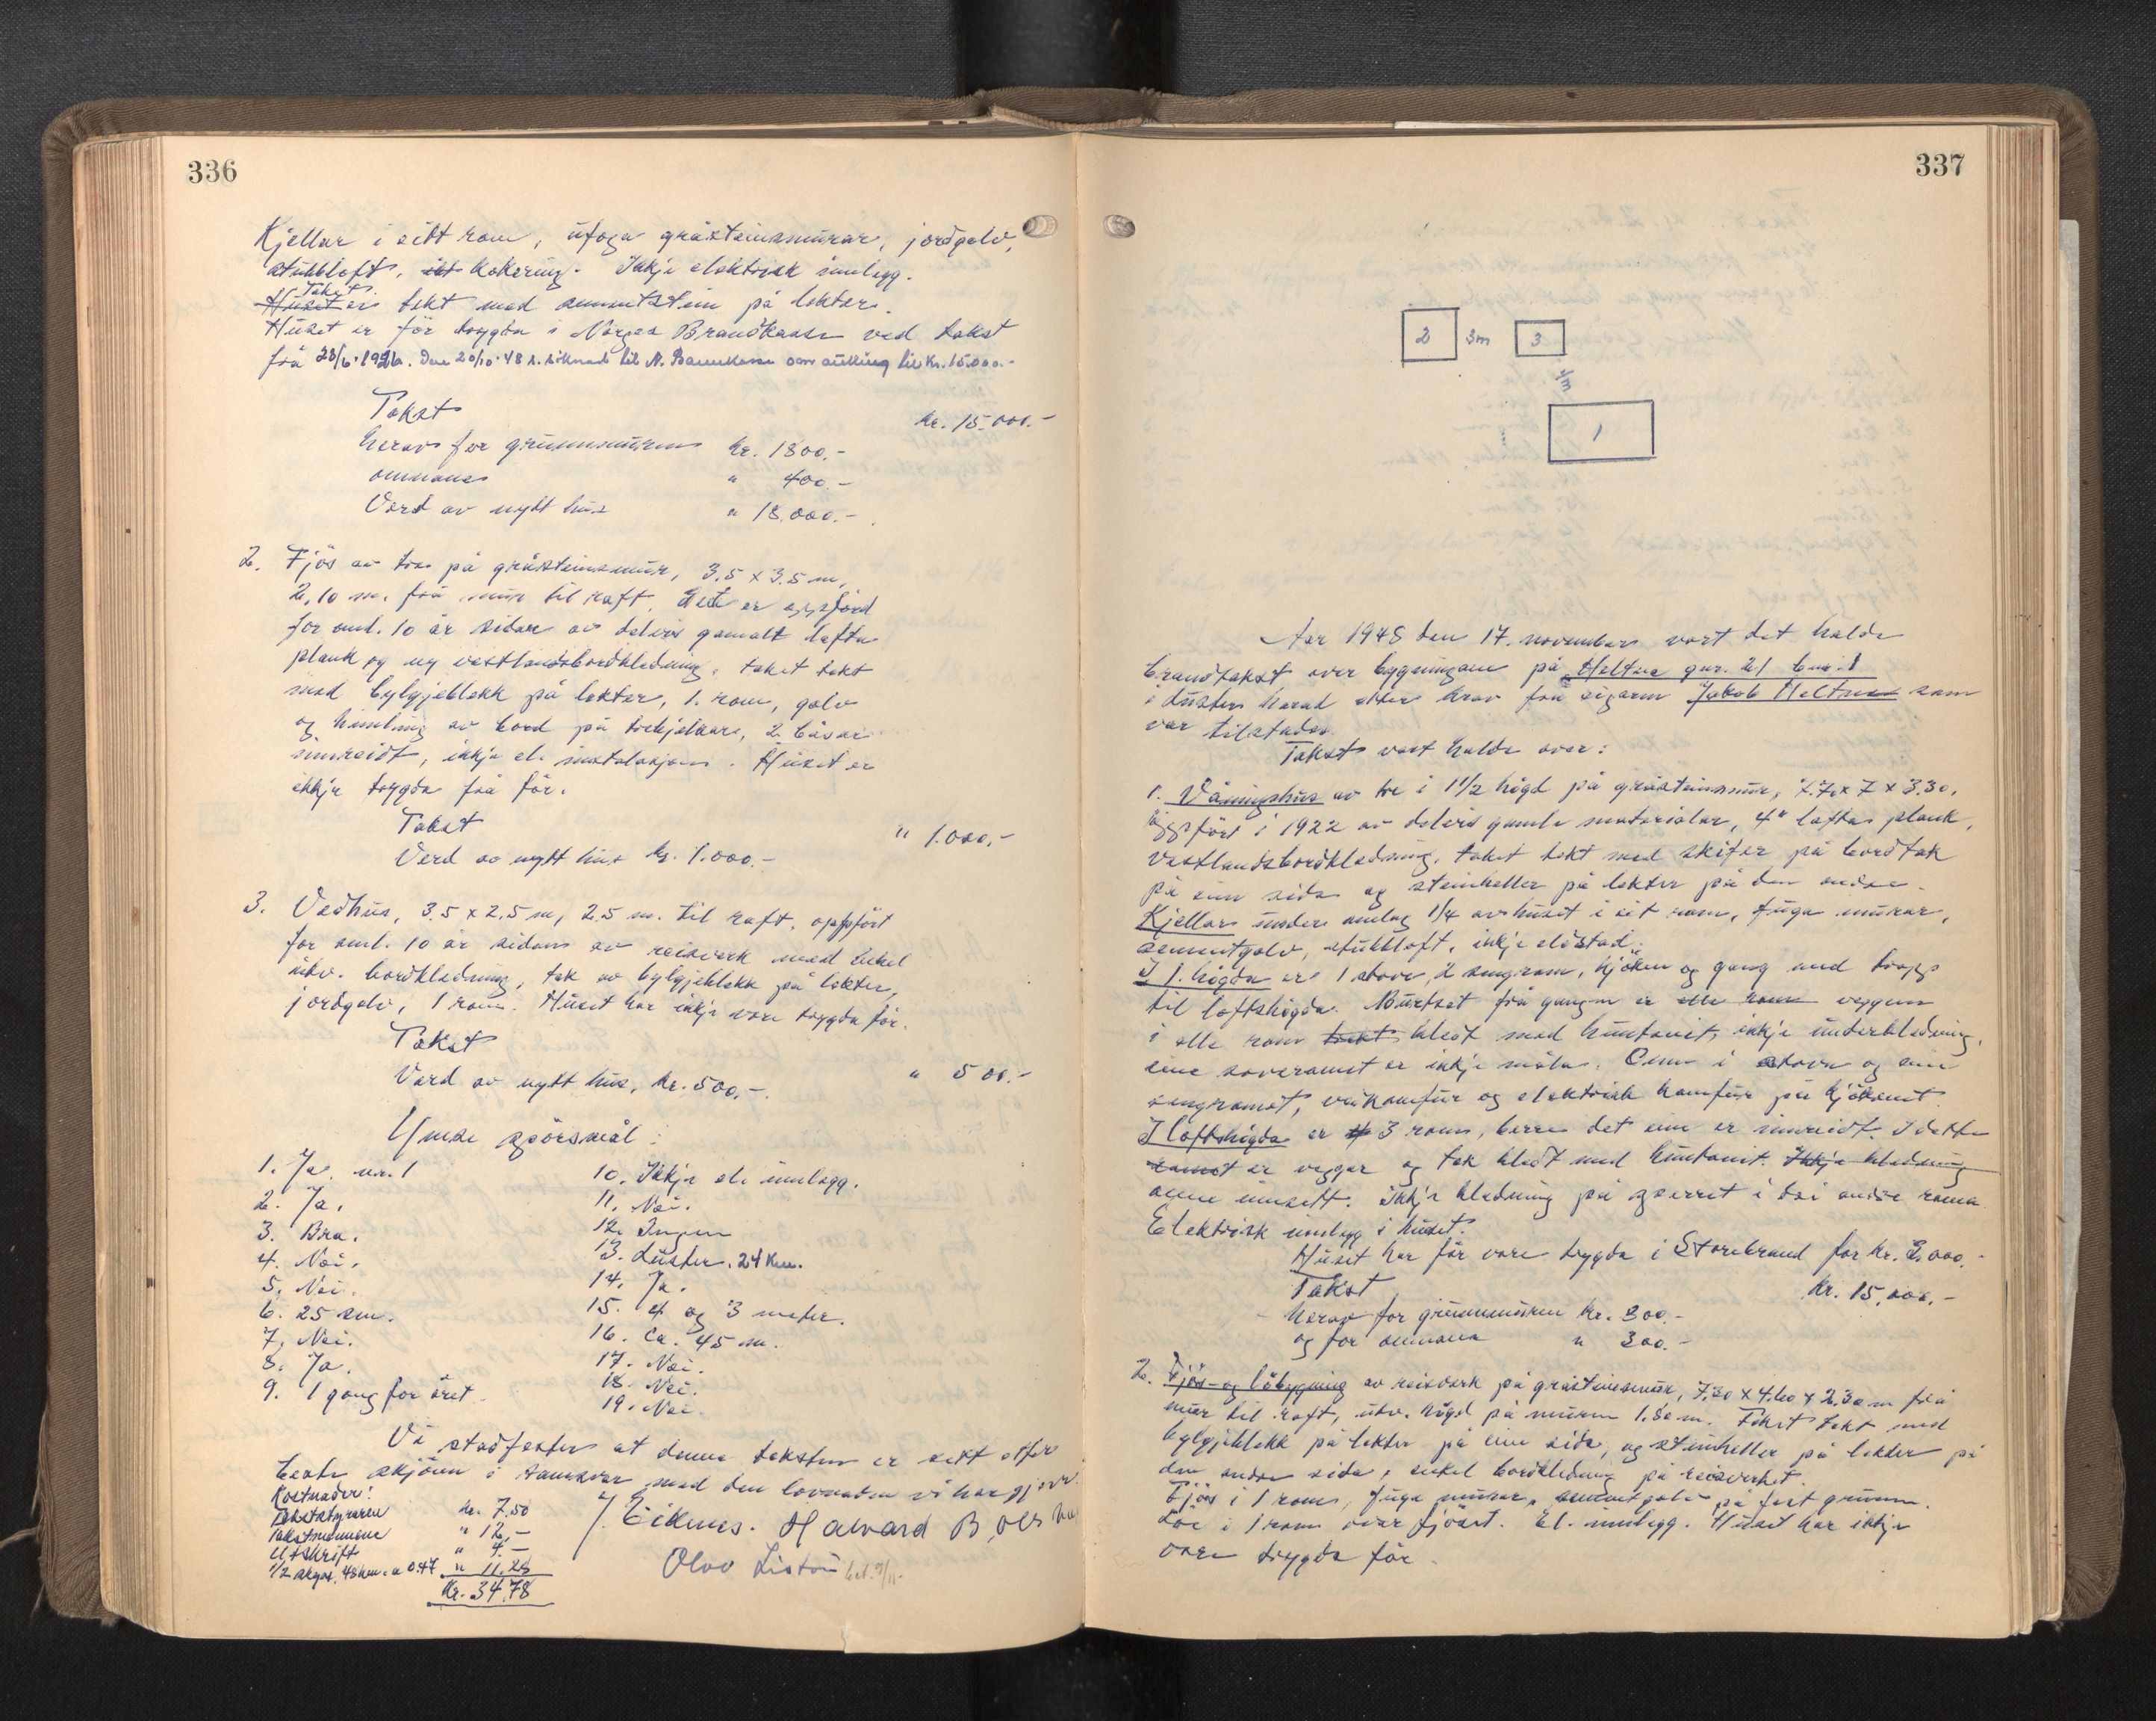 336
Kjellar i eitt rom, ufoga gråsteinsmurar, jordgolv,
stubbloft, Ikkje elektrisk innlegg.
Taket
Huset er tekt med sementstein på lekter.
Huset er før trygda i Norges Brandkasse ved takst
frå 28/6-1926. Den 20/10-48 til N. Brannkasse om auking til kr. 15.000.-
Takst kr. 15.000.-
herav for grunnmuren kr. 1800.-
omnane " 400.-
Verd av nytt hus " 18.000.-
2. Fjøs av tre på gråsteinsmur, 3,5 x 3.5 m,
2,10 m. frå mur til raft. Det er oppførd
for oml. 10 år sidan av delvis gamalt lafta
plank og ny vestlandsbordkledning, taket tekt
med bylgjeblekk på lekter, 1. rom, golv
og himling av bord på trebjelkar, 2 båsar
innreidt, ikkje el. installasjon. Huset er
ikkje trygda frå før.
Takst " 1.000,-
Verd av nytt hus kr. 1.000.-
3. Vedhus, 3.5 x 2.5 m, 2.5 m. til raft, oppført
for oml. 10 år sidan av reisverk med enkel
utv. bordkledning, tak av bylgjeblekk på lekter,
jordgolv, 1 rom. Huset har ikkje vore trygda før.
Takst " 500.-
Verd av nytt hus, kr. 500,-.
Ymse spørsmål:
1. Ja nr. 1
2. Ja.
3. Bra.
4. Nei.
5. Nei.
6. 25 cm.
7. Nei.
8. Ja.
9. 1 gong for året
10. Ikkje el. innlegg.
11. Nei.
12. Ingen
13. Luster, 24 km.
14. Ja.
15. 4 og 3 meter.
16. Ca. 45 m.
17. Nei.
18. Nei.
19. Nei.
Vi stadfester at denne taksten er sett etter
beste skjønn i samsvar med den lovnaden vi har gjeve
Kostnader:
Takststyraren kr. 7.50
Takstmennene " 12,-
Utskrift " 4.-
1/2 skyss. 48 km. a 0.47 " 11.28
Kr. 34,78
Eiknes. Halvard B
Olav
337
2 3m 3
3m
1
Aar 1948 den 17. november vart det halde
brandtakst over bygningane på Heltne gnr. 21 bnr. 1
i Luster herad etter krav frå eigaren Jakob Heltne som
var tilstades.
Takst vart halde over:
1. Våningshus av tre i 1 1/2 høgd på gråsteinsmur, 7.70 x 7 x 3.30,
oppført i 1922 av delvis gamle materialar, 4" lafta plank,
vestlandsbordkledning, taket tekt med skifer på bordtak
på ein side og steinheller på lekter på den andre.
Kjellar under omlag 1/4 av huset i eit rom, fuga murar,
sementgolv, stubbloft, ikkje eldstad.
I 1. høgda er 1 stove, 2 sengrom, kjøken og gang med trapp
til loftshøgda. Bortset frå gangen er alle rom veggen
i alle rom tekt kledt med huntonit, ikkje underkledning,
eine soveromet er ikkje måla. Omn i stova og eine
sengromet, vedkomfyr og elektrisk komfyr på kjøkenet.
I loftshøgda er 3 rom, berre det eine er innreidt. I dette
romet er vegger og tak kledt med huntonit. Ikkje kledning
omn innsett. Ikkje kledning på sperret i dei andre roma.
Elektrisk innlegg i huset.
Huset har før vore trygda i Storebrand for kr. 8.000.-
Takst kr. 15,000.-
herav for grunnmuren kr. 800.-
og for omnane " 300.-
2. Fjøs- og løbygning av reisverk på gråsteinsmur, 7.30 x 4.60 x 2,30 m frå
mur til raft, utv. høgd på muren 1.80 m. Taket tekt med
bylgjeblekk på lekter på eine sida, og steinheller på lekter på
den andre sida, enkel bordkledning på reisverket.
Fjøs i 1 rom, fuga murar, sementgolv på fast grunn.
Løe i 1 rom over fjøset. El. innlegg. Huset har ikkje
vore trygda før.